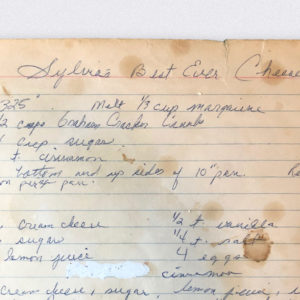 Sylvia's Best Ever Cheese
325° . Melt 1/3 cup margarine
1/2 cups Graham Cracker Crumbs
cup sugar
t. cinnamon
bottom and up sides of 10" pan.
pan.
cream cheese 1/2 t vanilla
sugar 1/4 t salt
lemon juice 4 eggs
cinnamon
cream cheese, sugar, lemon juice,